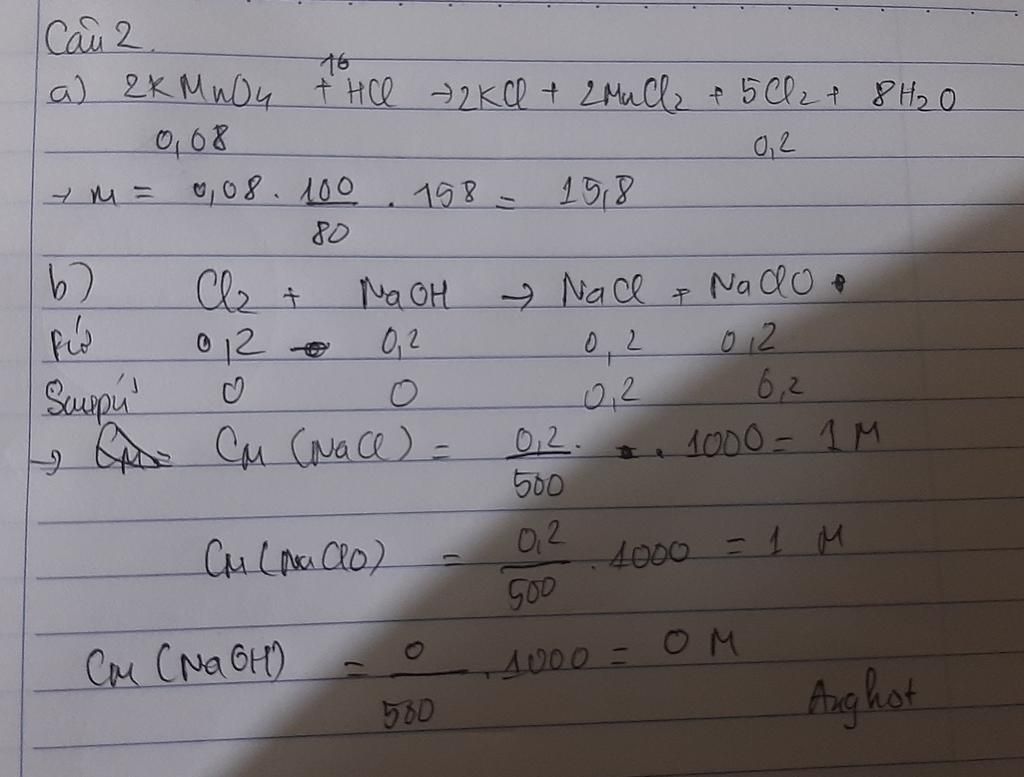 Câu 2.
a) 2KMnO4 + 16 HCl → 2KCl + 2MnCl2 + 5Cl2 + 8H2O
0,08 0,2
→ m = 0,08 . 100/80 . 158 = 15,8
b) Cl2 + NaOH → NaCl + NaClO
Pứ 0,2 0,2 0,2 0,2
Saupứ 0 0 0,2 0,2
→ CM (NaCl) = 0,2/500 . 1000 = 1 M
CM (NaClO) = 0,2/500 . 1000 = 1 M
CM (NaOH) = 0/500 . 1000 = 0 M
Anghot